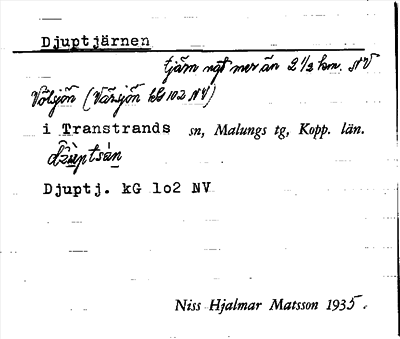 Djuptjärnen
tjärn ngt mer än 2 1/2 km NV
Vötsjön (Värsjön kG 102 NV)
i Transtrands sn, Malungs tg, Kopp. län.
Djuptj. kG 1o2 NV
Niss Hjalmar Matsson 1935.